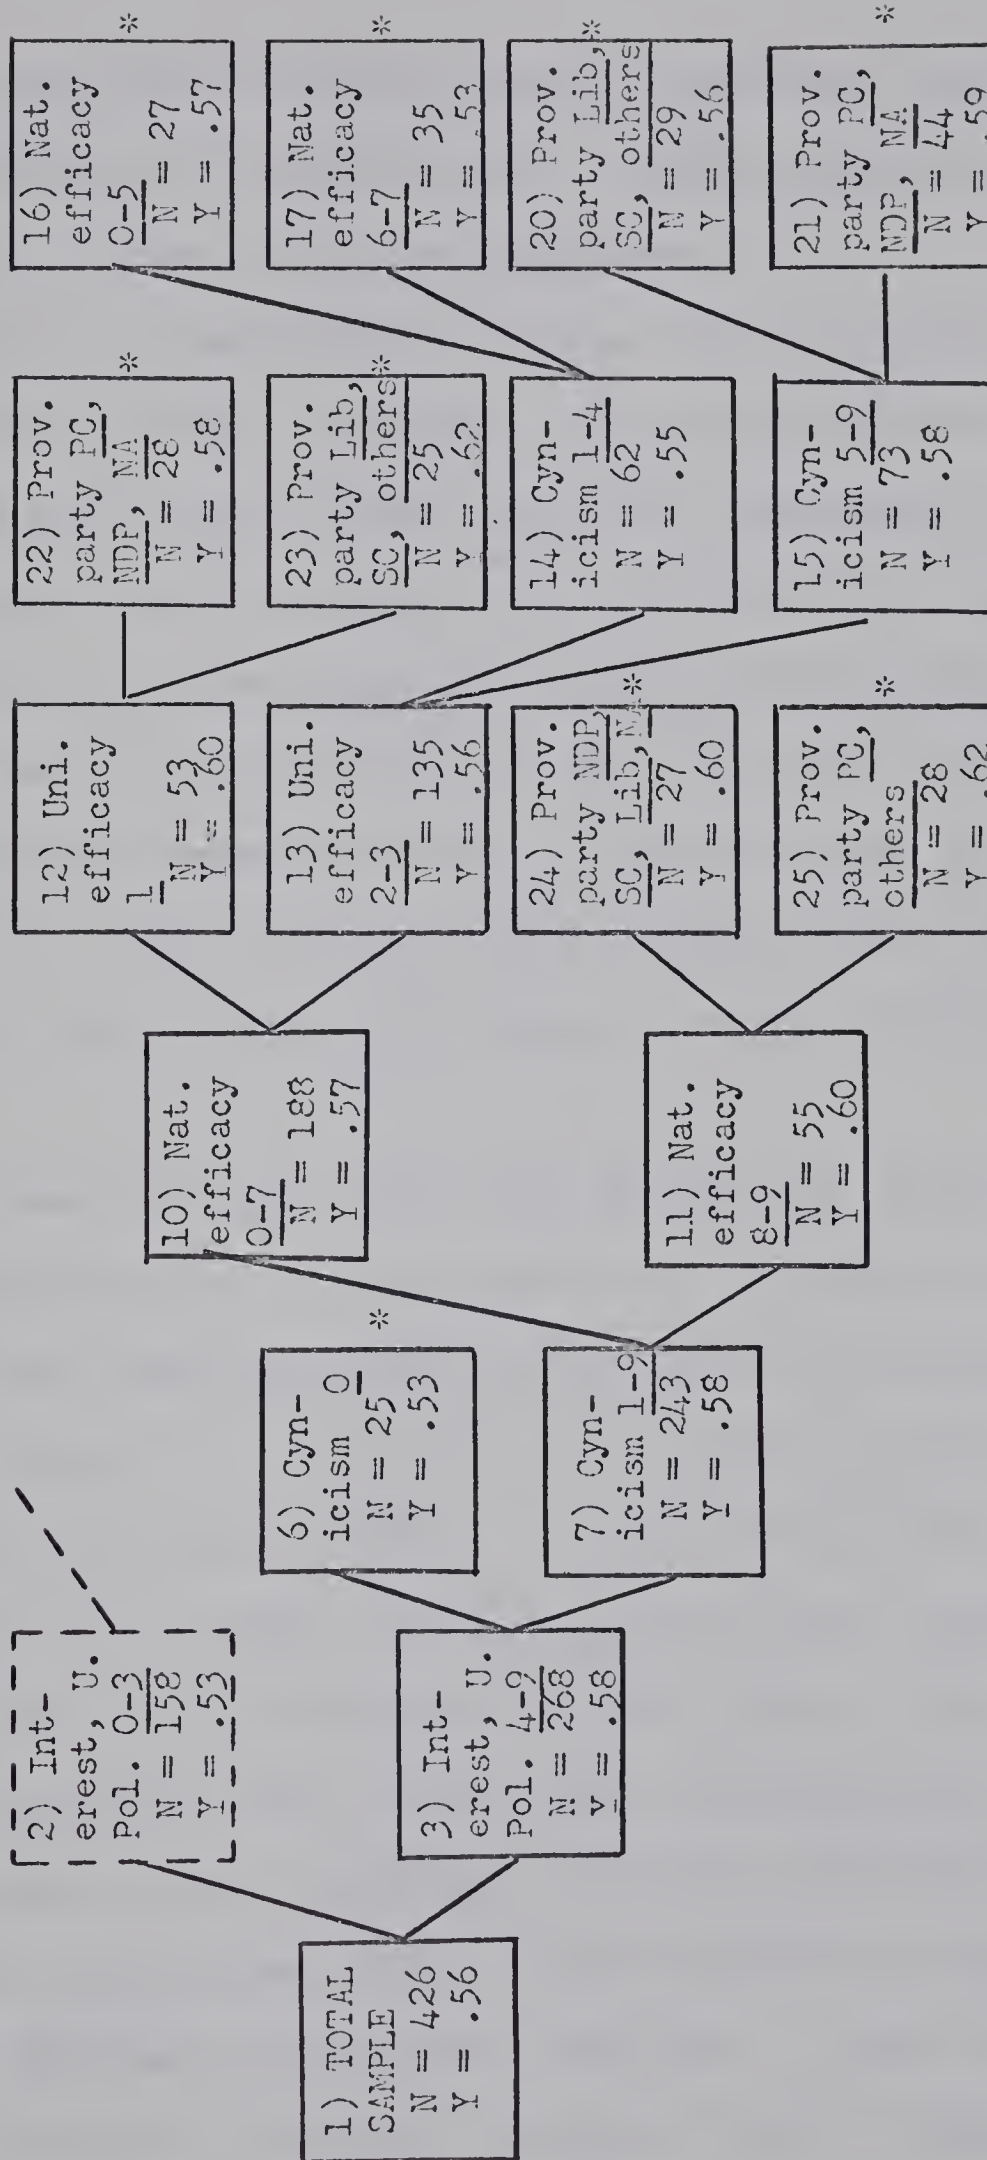 1) TOTAL
SAMPLE
N = 426
Y = .56
2) Int-
erest, U.
Pol. 0-3
N = 158
Y = .53
3) Int-
erest, U.
Pol. 4-9
N = 268
Y = .58
6) Cyn-
icism 0
N = 25
Y = .53
*
7) Cyn-
icism 1-9
N = 243
Y = .58
10) Nat.
efficacy
0-7
N = 188
Y = .57
11) Nat.
efficacy
8-9
N = 55
Y = .60
12) Uni.
efficacy
1
N = 53
Y = .60
13) Uni.
efficacy
2-3
N = 135
Y = .56
24) Prov.
party NDP,
SC, Lib,NA*
N = 27
Y = .60
25) Prov.
party PC,
others
N = 28
Y = .62
*
22) Prov.
party PC,
NDP, NA
N = 28
Y = .58
*
23) Prov.
party Lib,
SC, others*
N = 25
Y = .62
14) Cyn-
icism 1-4
N = 62
Y = .55
15) Cyn-
icism 5-9
N = 73
Y = .58
16) Nat.
efficacy
0-5
N = 27
Y = .57
*
17) Nat.
efficacy
6-7
N = 35
Y = .53
*
20) Prov.
party Lib,*
SC, others
N = 29
Y = .56
21) Prov.
party PC,
NDP, NA
N = 44
Y = .59
*